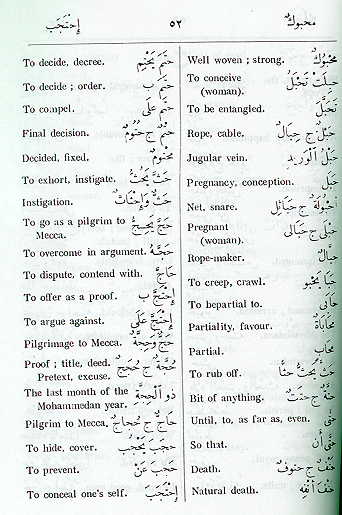 مَحْبُوكٌ ٥٢ إِحْتَجَبَ
Well woven ; strong. مَحْبُوكٌ
To conceive حَبِلَتْ تَحْبَلُ
(woman).
To be entangled. تَحَبَّلَ
Rope, cable. حَبْلٌ ج حِبَالٌ
Jugular vein. حَبْلُ ٱلْوَرِيدِ
Pregnancy, conception. حَبَلٌ
Net, snare. أُحْبُولَةٌ ج حَبَائِلُ
Pregnant حُبْلَى ج حَبَالَى
(woman).
Rope-maker. حَبَّالٌ
To creep, crawl. حَبَا يَحْبُو
To bepartial to. حَابَى
Partiality, favour. مُحَابَاةٌ
Partial. مُحَابٍ
To rub off. حَتَّ يَحُتُّ حَتًّا
Bit of anything. حَتَّةٌ ج حَتَتٌ
Until, to, as far as, even. حَتَّى
So that. حَتَّى أَنْ
Death. حَتْفٌ ج حُتُوفٌ
Natural death. حَتْفَ أَنْفِهِ
To decide, decree. حَتَمَ يَحْتِمُ
To decide ; order. حَتَمَ ب
To compel. حَتَمَ عَلَى
Final decision. حَتْمٌ ج حُتُومٌ
Decided, fixed. مَحْتُومٌ
To exhort, instigate. حَثَّ يَحُثُّ
Instigation. حَثٌّ وَإِحْثَاثٌ
To go as a pilgrim to حَجَّ يَحِجُّ
Mecca.
To overcome in argument. حَجَّهُ
To dispute, contend with. حَاجَّ
To offer as a proof. إِحْتَجَّ ب
To argue against. إِحْتَجَّ عَلَى
Pilgrimage to Mecca. حَجٌّ وَحِجَّةٌ
Proof ; title, deed. حُجَّةٌ ج حُجَجٌ
Pretext, excuse.
The last month of the ذُو ٱلْحِجَّةِ
Mohammedan year.
Pilgrim to Mecca. حَاجٌّ ج حُجَّاجٌ
To hide, cover. حَجَبَ يَحْجُبُ
To prevent. حَجَبَ عَنْ
To conceal one's self. إِحْتَجَبَ